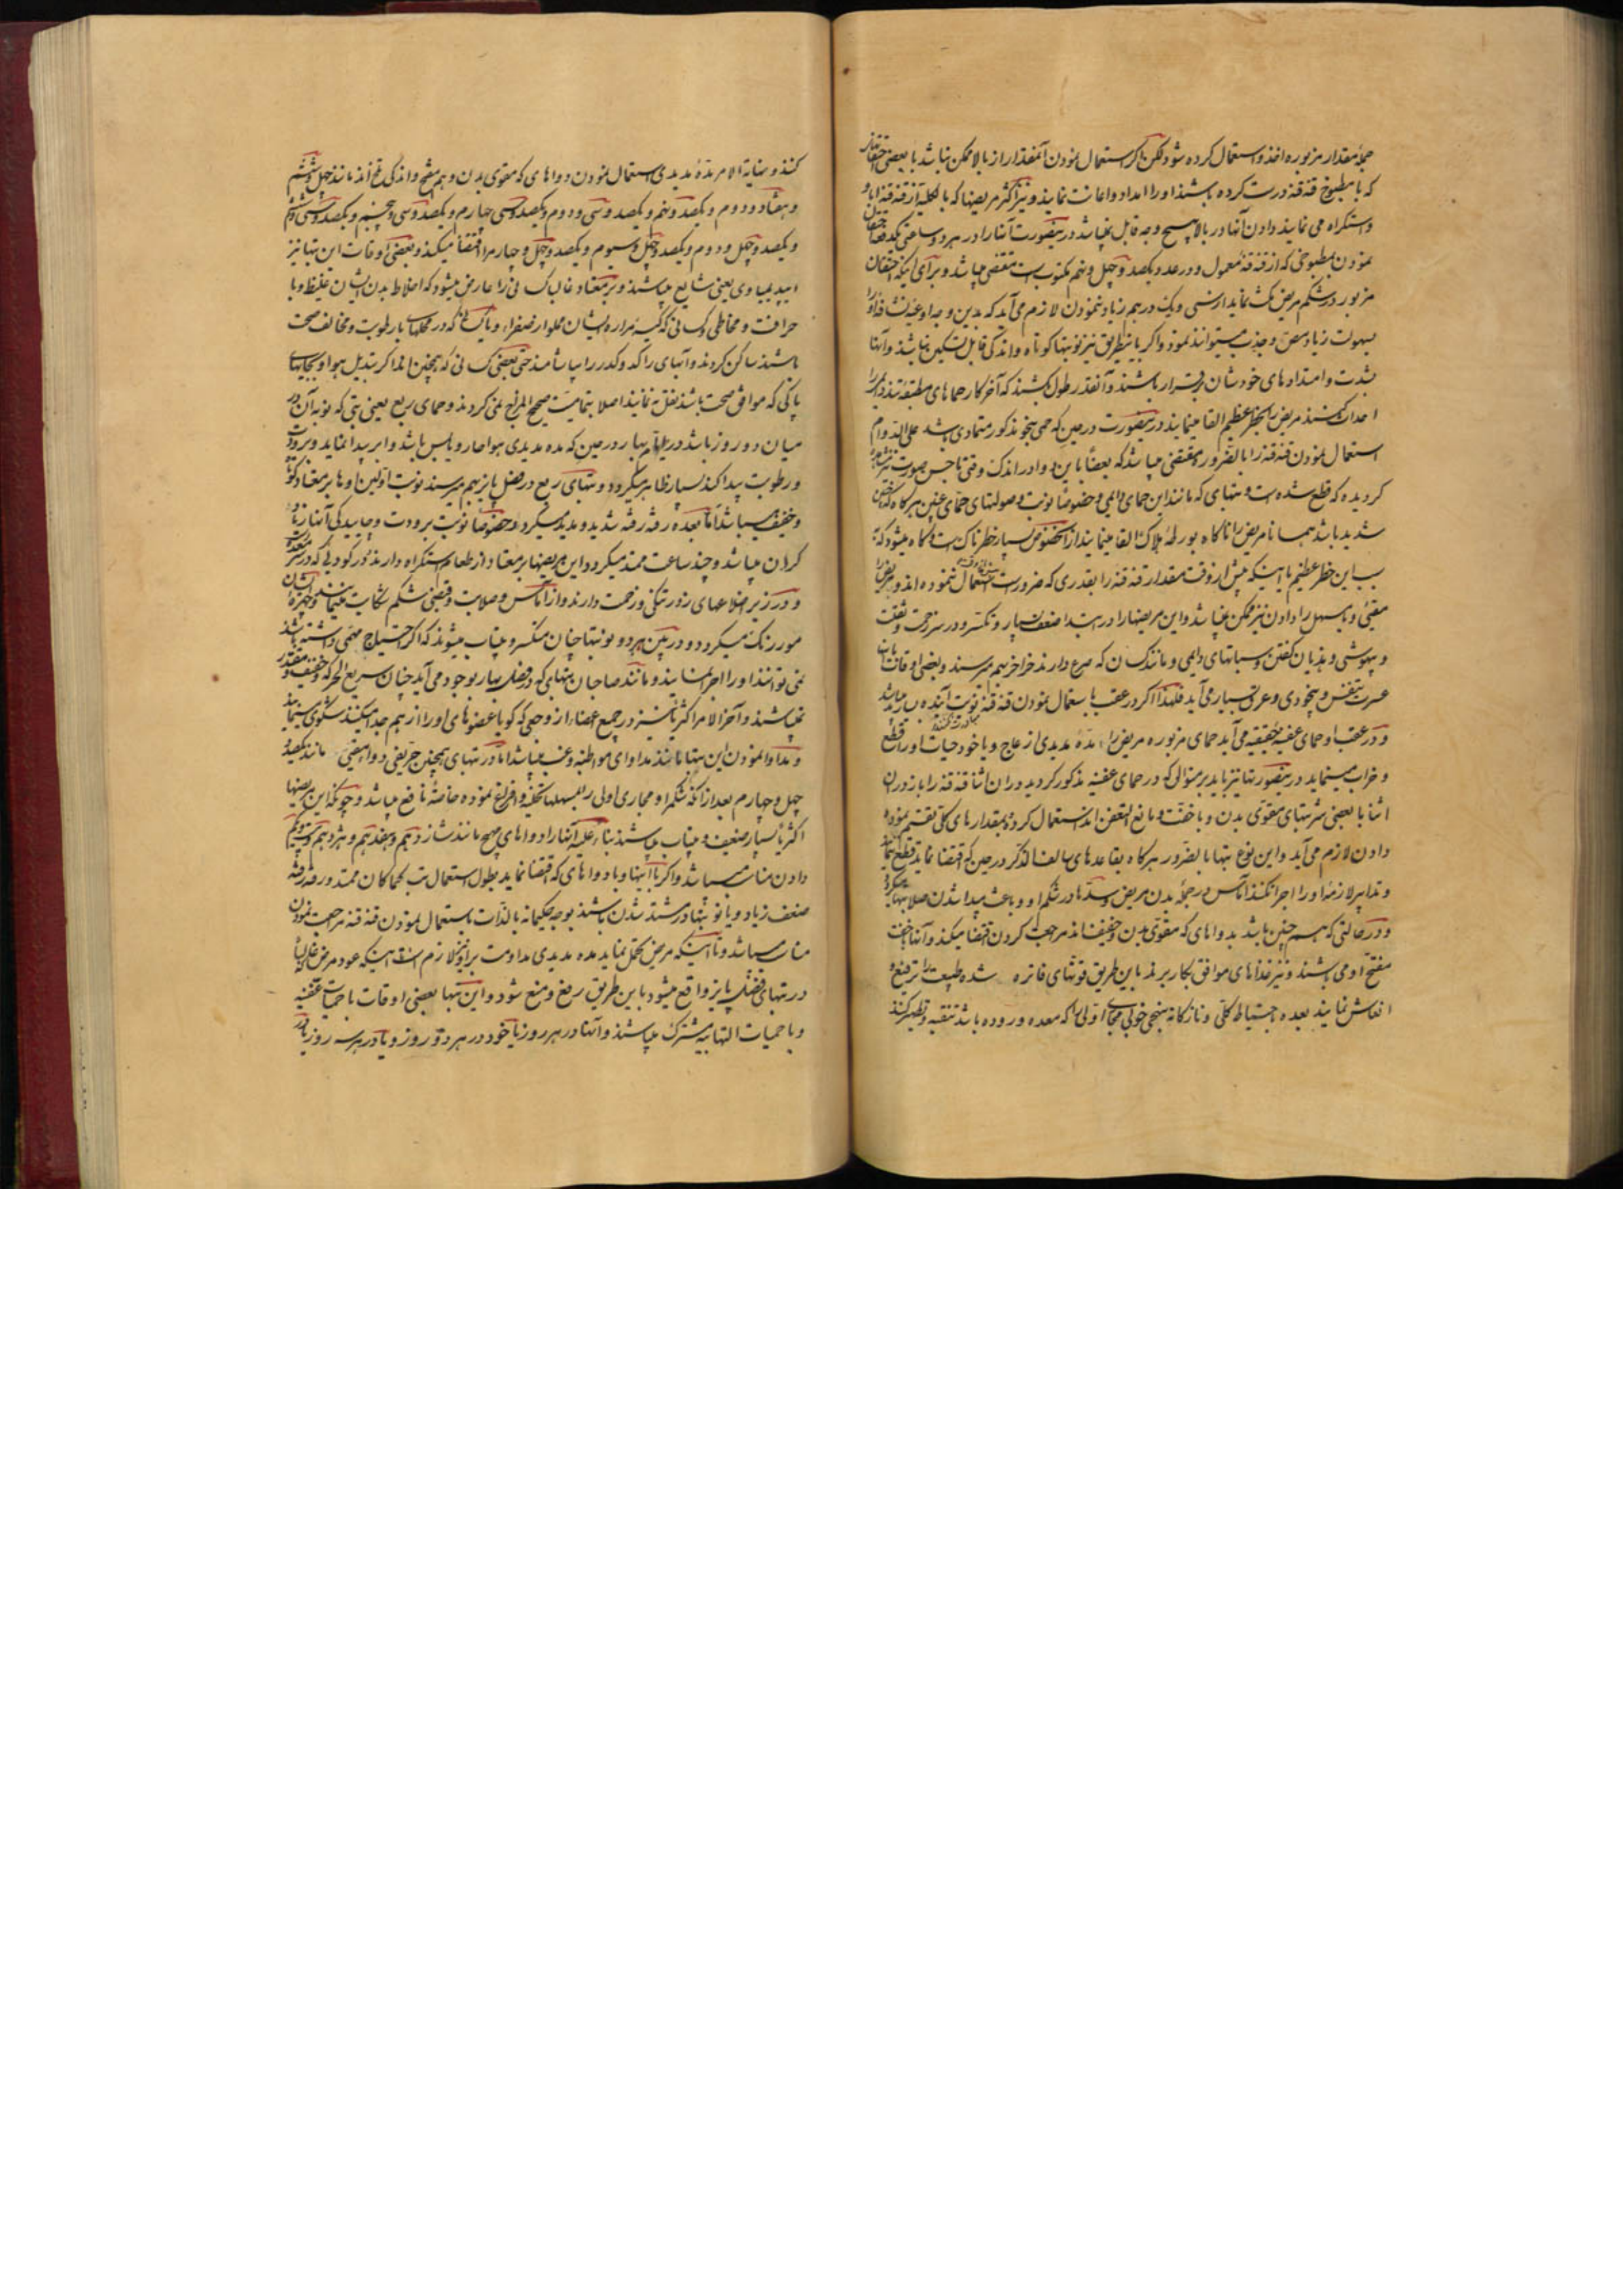 جملهٔ مقدار مزبوره اخذ و استعمال کرده شود لکن اگر استعمال نمودن آنمقدار از بالا ممکن نباشد با بعضی
که با مطبوخ قنه قنه درست کرده باشند او را امداد و اعانت نمایند و نیز اکثر مریضها که بالکلیه از قنه قنه ابا و
و استکراه می نمایند و دادن آنها در بالا بهیچ وجه قابل نمیباشد در اینصورت آنها را در هر دو ساعتی یکدفعه
نمودن مطبوخی که از قنه قنهٔ معمول و در عدد یکصد و چهل و پنجم مکتوب است مقتضی میباشد و برای اینکه احتقان
مزبور در شکم مریض مکث نماید از سی و یک درهم زیاد ننمودن لازم می آید که بدین وجه اوعیه
بسهولت زیاد مص و جذب میتوانند نمود و اگر باینطریق نیز نوبتها کوتاه و اندکی قابل تسکین نباشند و آنها
بشدت و امتدادهای خودشان برقرار باشند و آنقدر طول کشند که آخر کار حماهای مطبقه
احداث کنند مریض را بخطر عظیم القا مینمایند در اینصورت در حین که حمی بنحو مذکور متمادی باشد علی الدوام
استعمال نمودن قنه قنه را بالضرور مقتضی میباشد که بعضاً باین دوا در اندک وقتی
کردیده که قطع شده است و تبهای که مانند این حمای دایمی و خصوصاً نوبت و صولتهای حمای عفنی هرگاه که
شدید باشد همانا مریض را ناگاه بورطهٔ هلاک القا مینمایند از اینخصوص بسیار خطرناک است و گاه میشود که
سبب این خطر عظیم یا اینکه پیش از وقت مقدار قنه قنه را بقدری که ضرور است استعمال ننموده اند و مریض را
مقیئ و یا مسهل را دادن نیز ممکن نمیباشد و این مریضها را در ابتدا ضعف بسیار و تکسر و در سر زحمت و ثقلت
و بیهوشی و هذیان گفتن و سباتهای دایمی و مانند کسان که صرع دارند خراخر بهم میرسند و بعضی اوقات
عسرت تنفس و بیخودی و عرق بسیار می آید فلهذا اگر در عقب باستعمال نمودن قنه قنه نوبت آینده
و در عقب او حمای عفنیهٔ حقیقیه می آید حمای مزبوره مریض را مدهٔ مدیدی ازعاج و یا خود حیات او را قطع
و خراب مینماید در اینصورتها نیز باید بر منوالی که در حمای عفنیه مذکور گردید در آن اثنا قنه قنه را
اثنا با بعضی شربتهای مقوی بدن و با خفت و مانع التعفن اند استعمال کرده و بمقدارهای کلی تقسیم نموده
دادن لازم می آید و این نوع تبها بالضرور هرگاه بقاعدهای سالف الذکر در حین که اقتضا نماید قطع
و تدابیر لازمهٔ او را اجرا نکنند آماس در جملهٔ بدن مریض و سدها در شکم او و باعث پیدا شدن صلابتها
و در حالتی که هم چنین باشد بدواهای که مقوی بدن و خفیف اند مراجعت کردن اقتضا میکند و آنها
مفتح او می باشند و نیز غذاهای موافق بکار برند باین طریق قوتهای فاتره شده طبیعت را ترفیع و
انعاش نمایند بعده باحتیاط کلی و نازکانه بنحو خوبی مجاری اولی را که معده و روده باشد تنقیه و تطهیر کنند
کنند و نهایة الامر مدهٔ مدیدی استعمال نمودن دواهای که مقوی بدن و هم مفتح و اندکی تلخ اند مانند چهل و ششم
و هفتاد و دوم و یکصد و پنجم و یکصد و سی و دوم و یکصد و سی چهارم و یکصد و سی و پنجم و یکصد و سی و ششم
و یکصد و چهل و دوم و یکصد و چهل و سیوم و یکصد و چهل و چهارم را اقتضا میکند و بعضی اوقات این تبها نیز
اپیدیمیاوی یعنی شایع میباشند و بر معتاد غالب کسانی را عارض میشود که اخلاط بدن ایشان غلیظ و با
حرافت و مخاطی و کسانی که کیسهٔ مراره ایشان مملو از صفراء و یا کسانی که در محلهای با رطوبت و مخالف صحت
باشند ساکن گردند و آبهای راکد و کدر را بیاشامند حتی بعضی کسانی که همچنین اند اگر بتبدیل هوا و بجایهای
پاکی که موافق صحت باشد نقل ننمایند اصلا بتمامیت صحیح المزاج نمی گردند و حمای ربع یعنی تبی که نوبه آن در
میان دو روز باشد در ایام بهار در حین که مده مدیدی هوا حار و یابس باشد و ابر پیدا نماید و برودت
و رطوبت پیدا کند بسیار ظاهر میگردد و تبهای ربع در فصل پاییز بهم میرسند نوبت اولین او ها بر معتاد کوتاه
و خفیف میباشد اما بعده رفته رفته شدید و مدید میگردد و خصوصاً نوبت برودت و چاییدگی آنها
گران میباشد و چند ساعت ممتد میگردد و این مریضها بر معتاد از طعام استکراه دارند
و در زیر اضلاعهای زور تنگی و زحمت دارند و از آماس و صلابت و قبضی شکم شکایت مینمایند و چهرهٔ ایشان
مور رنگ میگردد و در بین هر دو نوبتها چنان منکسر و بیتاب میشوند که اگر احتیاج مهمی داشته باشند
نمی توانند او را اجرا نمایند و مانند صاحبان تبهای که در فصل بهار بوجود می آید چنان سریع الحرکه و خفیف
نمیباشند و آخر الامر اکثریا نیز در جمیع اعضاء از وجعی که گویا عضوهای او را از هم جدا میکنند شکوی مینمایند
و مداوا نمودن این تبها مانند مداوای مواظبه و غب میباشد اما در تبهای همچنین خریفی دوا مقیئ مانند یکصد و
چهل و چهارم بعد از آنکه شکم را و مجاری اولی را بمسهلها تخلیه و افراغ نموده خاصهٔ نافع میباشد و چونکه این مریضها
اکثریا بسیار ضعیف و بیتاب میباشند بناءً علیه آنها را دواهای مهیج مانند شانزدهم و هفدهم و هژدهم
دادن مناسب میباشد و اگر با اینها و با دواهای که اقتضا نماید بطول استعمال تب کما کان ممتد و رفته رفته
ضعف زیاد و یا نوبتها در مشتد شدن باشند بوجه حکیمانه بالذات باستعمال نمودن قنه قنه مراجعت نمودن
مناسب میباشد و تا اینکه مریض تحمل نماید مده مدیدی مداومت بر او نیز لازم است اینکه عود مرض غالبا
در تبهای فصل پاییز واقع میشود باین طریق رفع و منع شود و این تبها بعضی اوقات با حمیات عفنیه
و با حمیات التهابیه مشترک میباشند و آنها در هر روز یا خود در هر دو روز و یا در هر سه روز